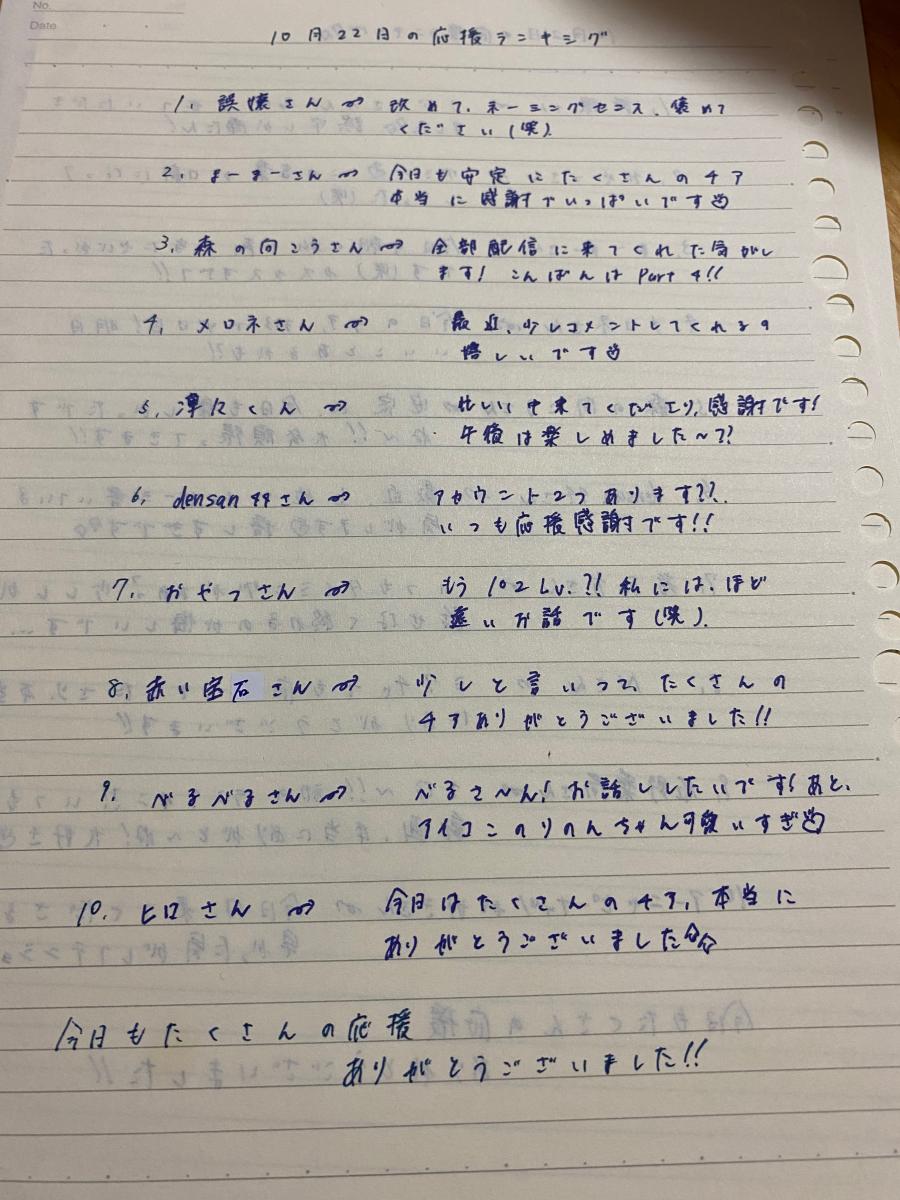 No.
Date
10月22日の応援ランキング
1. 誤嬢さん⇝ 改めて、ネーミングセンス、褒めて
ください(笑).
2. まーまーさん⇝ 今日も安定にたくさんのチア
本当に感謝でいっぱいです
3. 森の向こうさん⇝ 全部配信に来てくれた気がし
ます! こんばんは Part 4!!
4. メロネさん⇝ 最近、少しコメントしてくれるの
嬉しいです
5. 凖くん⇝ 忙しい中来てくださり、感謝です!
午後は楽しめました〜??
6. densan44さん⇝ アカウント2つあります??.
いつも応援感謝です!!
7. おやつさん⇝ もう 102 Lv.?! 私には、ほど
遠いお話です(笑).
8. 赤い宝石さん⇝ 少しと言いつつ、たくさんの
チアありがとうございました!!
9. べるべるさん⇝ べるさ〜ん! お話ししたいです! あと、
アイコンのりのんちゃん可愛いすぎ
10. ヒロさん⇝ 今日はたくさんのチア、本当に
ありがとうございました☆☆
今日もたくさんの応援
ありがとうございました!!